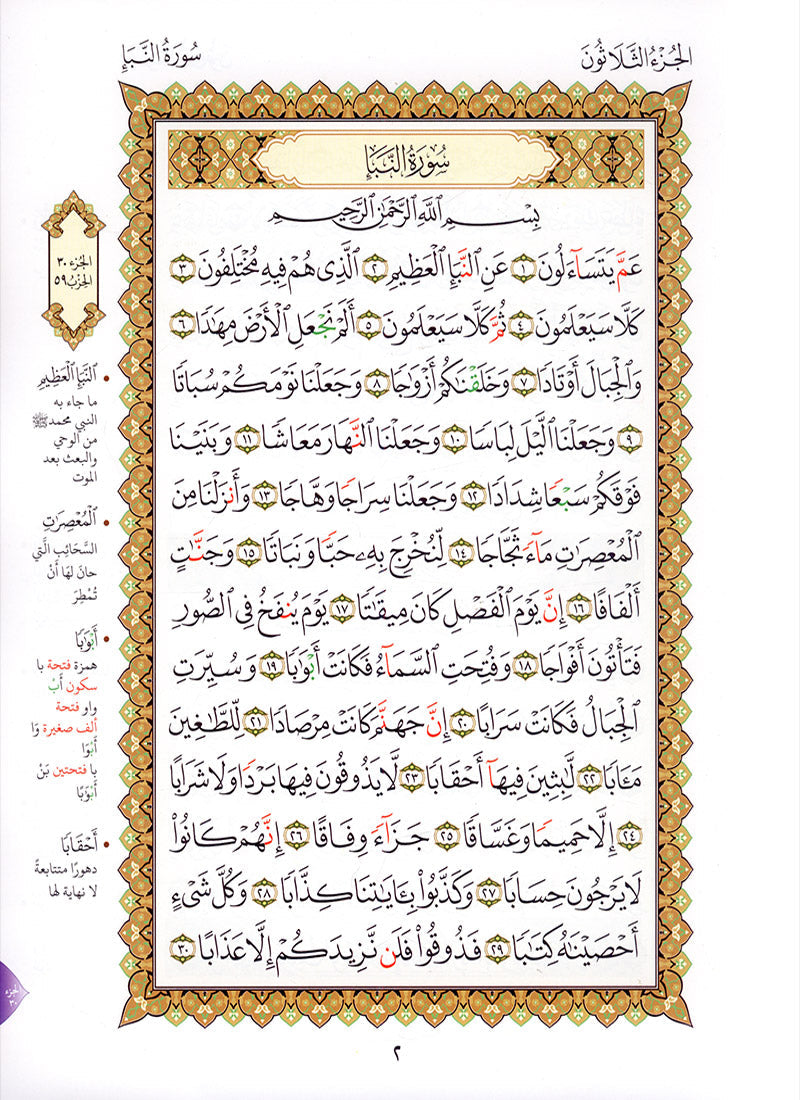 الجُزْءُ الثَّلَاثُونَ
سُورَةُ النَّبَإِ
سُورَةُ النَّبَإِ
بِسْمِ اللَّهِ الرَّحْمَٰنِ الرَّحِيمِ
عَمَّ يَتَسَآءَلُونَ ١ عَنِ ٱلنَّبَإِ ٱلْعَظِيمِ ٢ ٱلَّذِى هُمْ فِيهِ مُخْتَلِفُونَ ٣
كَلَّا سَيَعْلَمُونَ ٤ ثُمَّ كَلَّا سَيَعْلَمُونَ ٥ أَلَمْ نَجْعَلِ ٱلْأَرْضَ مِهَٰدًا ٦
وَٱلْجِبَالَ أَوْتَادًا ٧ وَخَلَقْنَٰكُمْ أَزْوَٰجًا ٨ وَجَعَلْنَا نَوْمَكُمْ سُبَاتًا
٩ وَجَعَلْنَا ٱلَّيْلَ لِبَاسًا ١٠ وَجَعَلْنَا ٱلنَّهَارَ مَعَاشًا ١١ وَبَنَيْنَا
فَوْقَكُمْ سَبْعًا شِدَادًا ١٢ وَجَعَلْنَا سِرَاجًا وَهَّاجًا ١٣ وَأَنزَلْنَا مِنَ
ٱلْمُعْصِرَٰتِ مَآءً ثَجَّاجًا ١٤ لِّنُخْرِجَ بِهِۦ حَبًّا وَنَبَاتًا ١٥ وَجَنَّٰتٍ
أَلْفَافًا ١٦ إِنَّ يَوْمَ ٱلْفَصْلِ كَانَ مِيقَٰتًا ١٧ يَوْمَ يُنفَخُ فِى ٱلصُّورِ
فَتَأْتُونَ أَفْوَاجًا ١٨ وَفُتِحَتِ ٱلسَّمَآءُ فَكَانَتْ أَبْوَٰبًا ١٩ وَسُيِّرَتِ
ٱلْجِبَالُ فَكَانَتْ سَرَابًا ٢٠ إِنَّ جَهَنَّمَ كَانَتْ مِرْصَادًا ٢١ لِّلطَّٰغِينَ
مَـَٔابًا ٢٢ لَّٰبِثِينَ فِيهَآ أَحْقَابًا ٢٣ لَّا يَذُوقُونَ فِيهَا بَرْدًا وَلَا شَرَابًا
٢٤ إِلَّا حَمِيمًا وَغَسَّاقًا ٢٥ جَزَآءً وِفَاقًا ٢٦ إِنَّهُمْ كَانُوا۟
لَا يَرْجُونَ حِسَابًا ٢٧ وَكَذَّبُوا۟ بِـَٔايَٰتِنَا كِذَّابًا ٢٨ وَكُلَّ شَىْءٍ
أَحْصَيْنَٰهُ كِتَٰبًا ٢٩ فَذُوقُوا۟ فَلَن نَّزِيدَكُمْ إِلَّا عَذَابًا ٣٠
الجُزء ٣٠
الحِزبُ ٥٩
ٱلنَّبَإِ ٱلْعَظِيمِ
ما جاء به
النبي محمد ﷺ
من الوحي
والبعث بعد
الموت
ٱلْمُعْصِرَٰتِ
السَّحَائِب الَّتي
حانَ لهَا أَنْ
تُمْطِرَ
أَبْوَٰبًا
همزة فتحة با
سكون أَبْ
واو فتحة
ألف صغيرة وَا
أَبْوَا
با فتحتين بَنْ
أَبْوَٰبًا
أَحْقَابًا
دهورًا متتابعةً
لا نهاية لها
الجزء
٣٠
٢